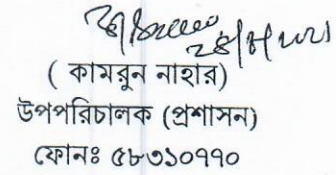 ( কামরুন নাহার)
উপপরিচালক (প্রশাসন)
ফোনঃ ৫৮৩১০৭৭০